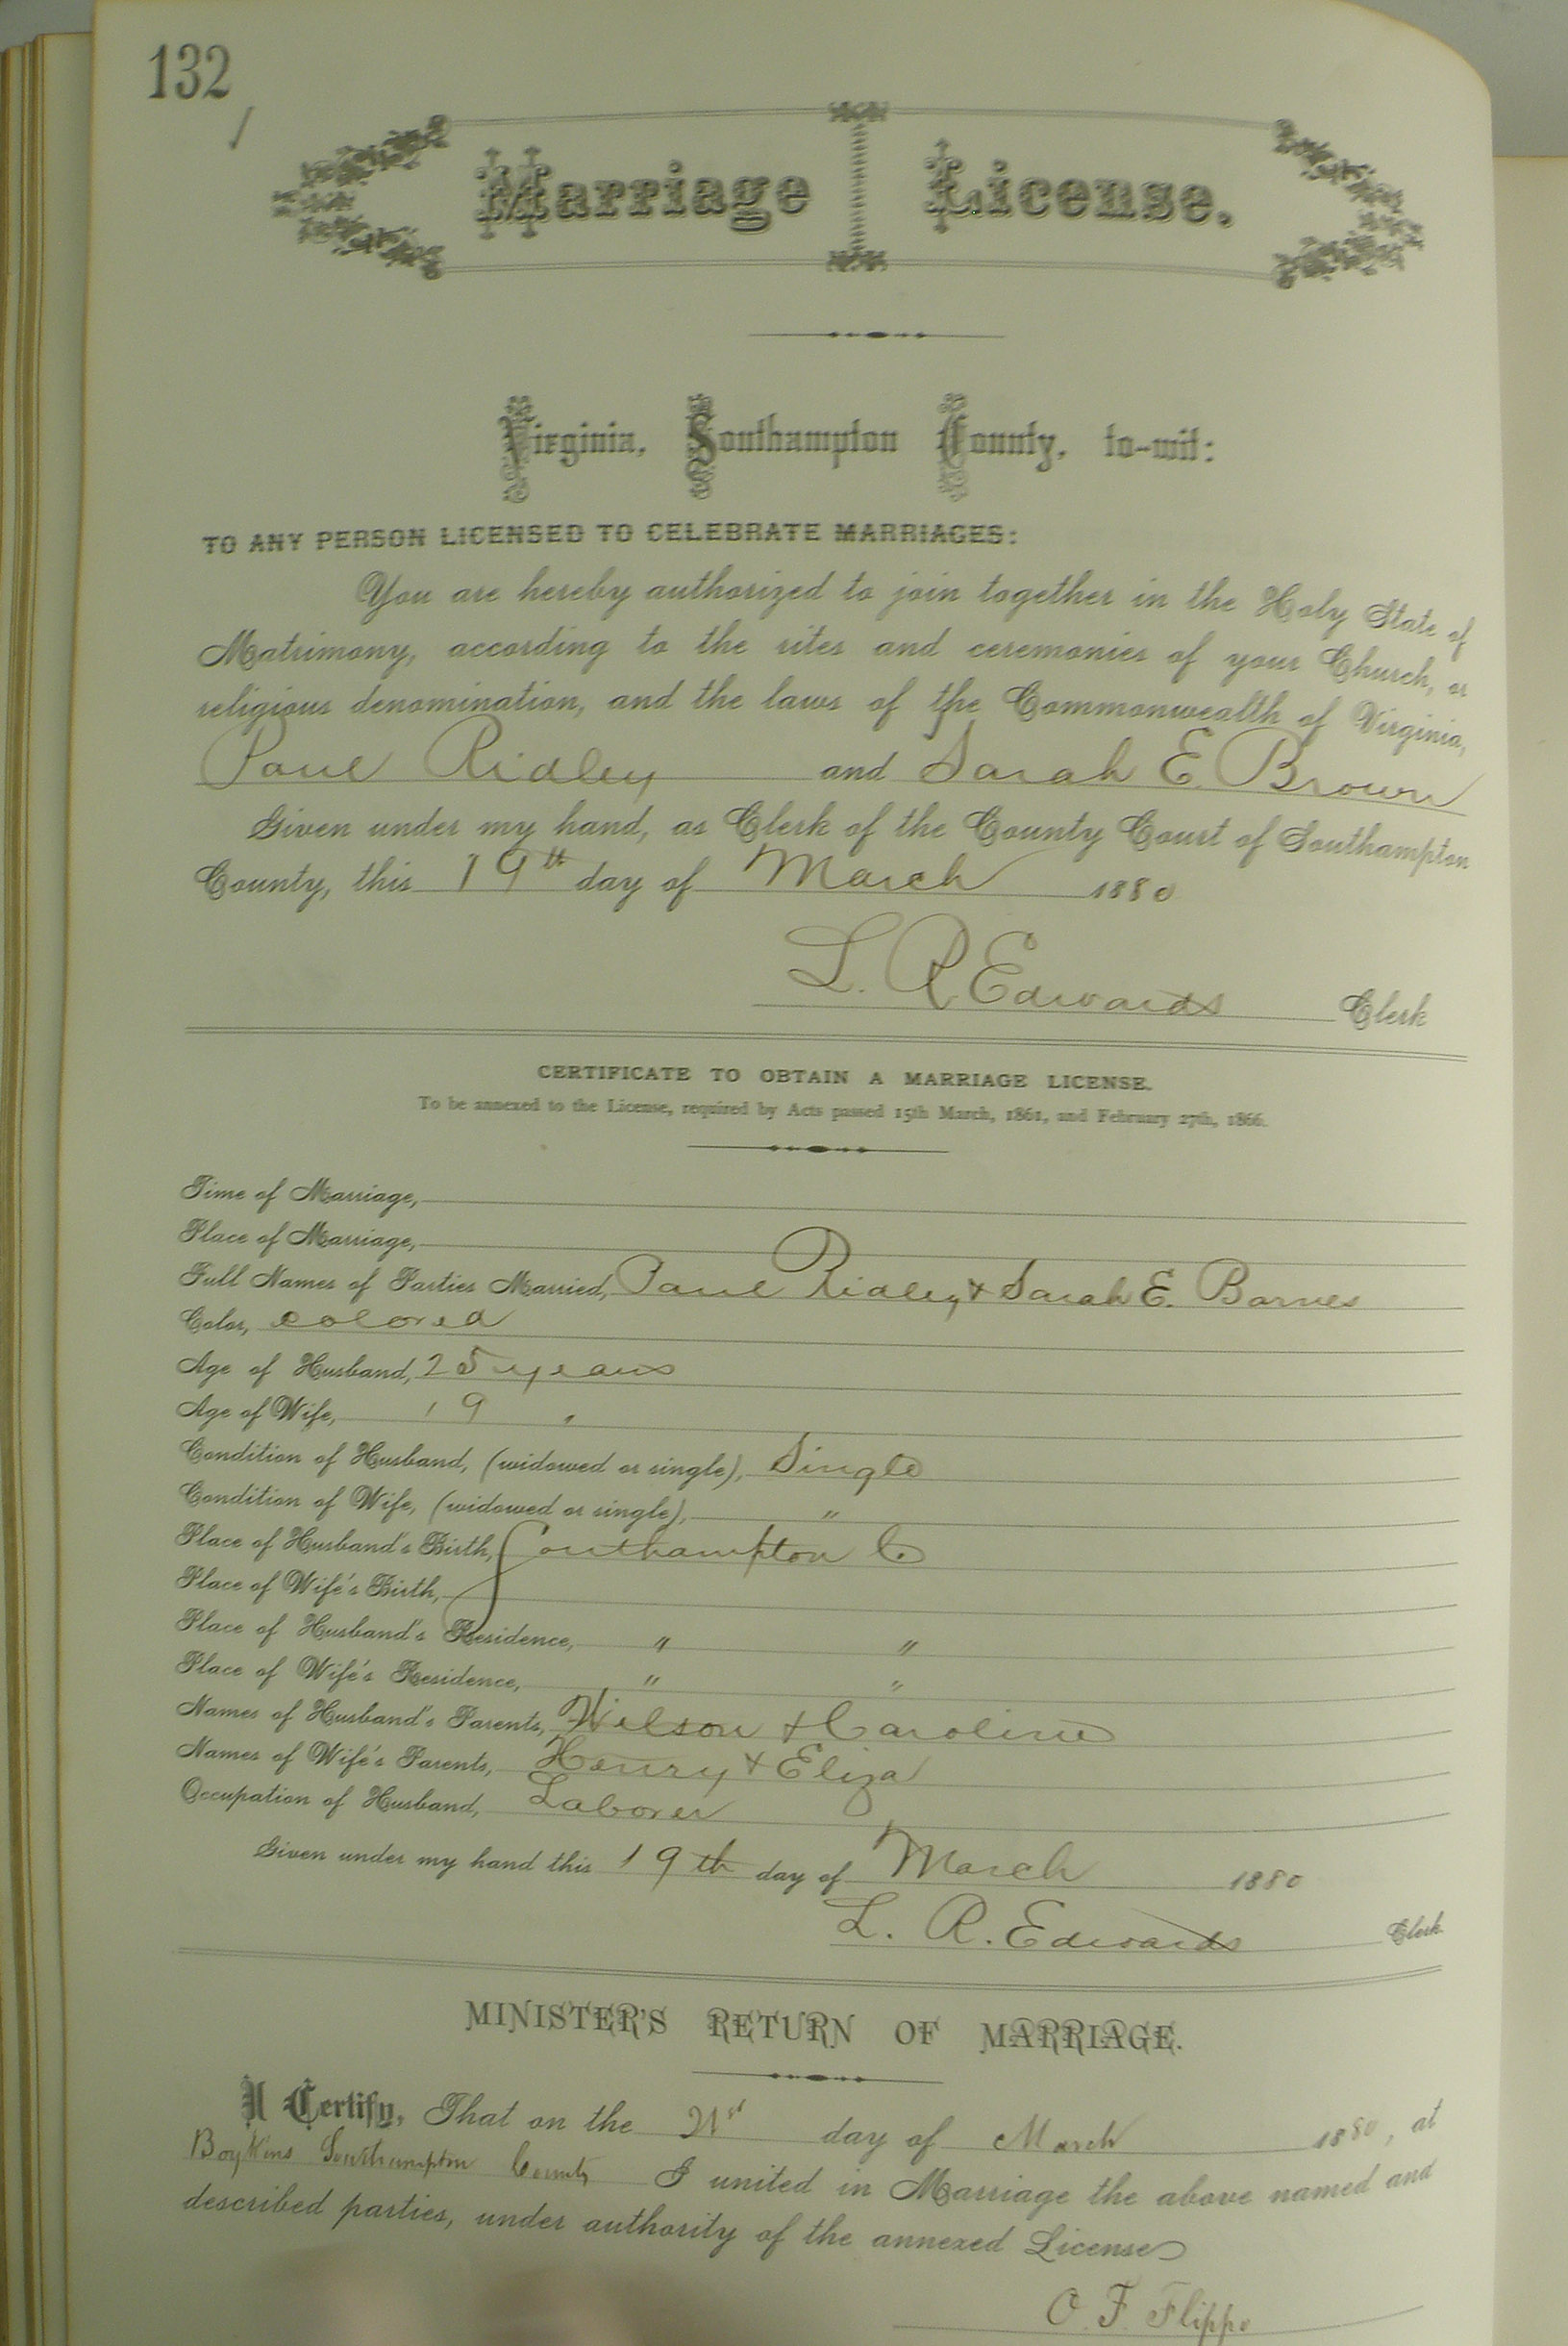 132
Marriage License.
Virginia, Southampton County, to-wit:
TO ANY PERSON LICENSED TO CELEBRATE MARRIAGES:
You are hereby authorized to join together in the Holy State of
Matrimony, according to the rites and ceremonies of your Church, or
religious denomination, and the laws of the Commonwealth of Virginia,
Paul Ridley and Sarah E. Brown
Given under my hand, as Clerk of the County Court of Southampton
County, this 19th day of March 1880
L. R. Edwards Clerk
CERTIFICATE TO OBTAIN A MARRIAGE LICENSE.
To be annexed to the License, required by Acts passed 15th March, 1861, and February 27th, 1866.
Time of Marriage,
Place of Marriage,
Full Names of Parties Married, Paul Ridley & Sarah E. Barnes
Color, colored
Age of Husband, 25 years
Age of Wife, 19 "
Condition of Husband, (widowed or single), Single
Condition of Wife, (widowed or single), "
Place of Husband's Birth, Southampton Co
Place of Wife's Birth,
Place of Husband's Residence, " "
Place of Wife's Residence, " "
Names of Husband's Parents, Wilson & Caroline
Names of Wife's Parents, Henry & Eliza
Occupation of Husband, Laborer
Given under my hand this 19th day of March 1880
L. R. Edwards Clerk
MINISTER'S RETURN OF MARRIAGE.
I Certify, That on the 21st day of March 1880, at
Boykins Southampton County I united in Marriage the above named and
described parties, under authority of the annexed License
O. F. Flippo